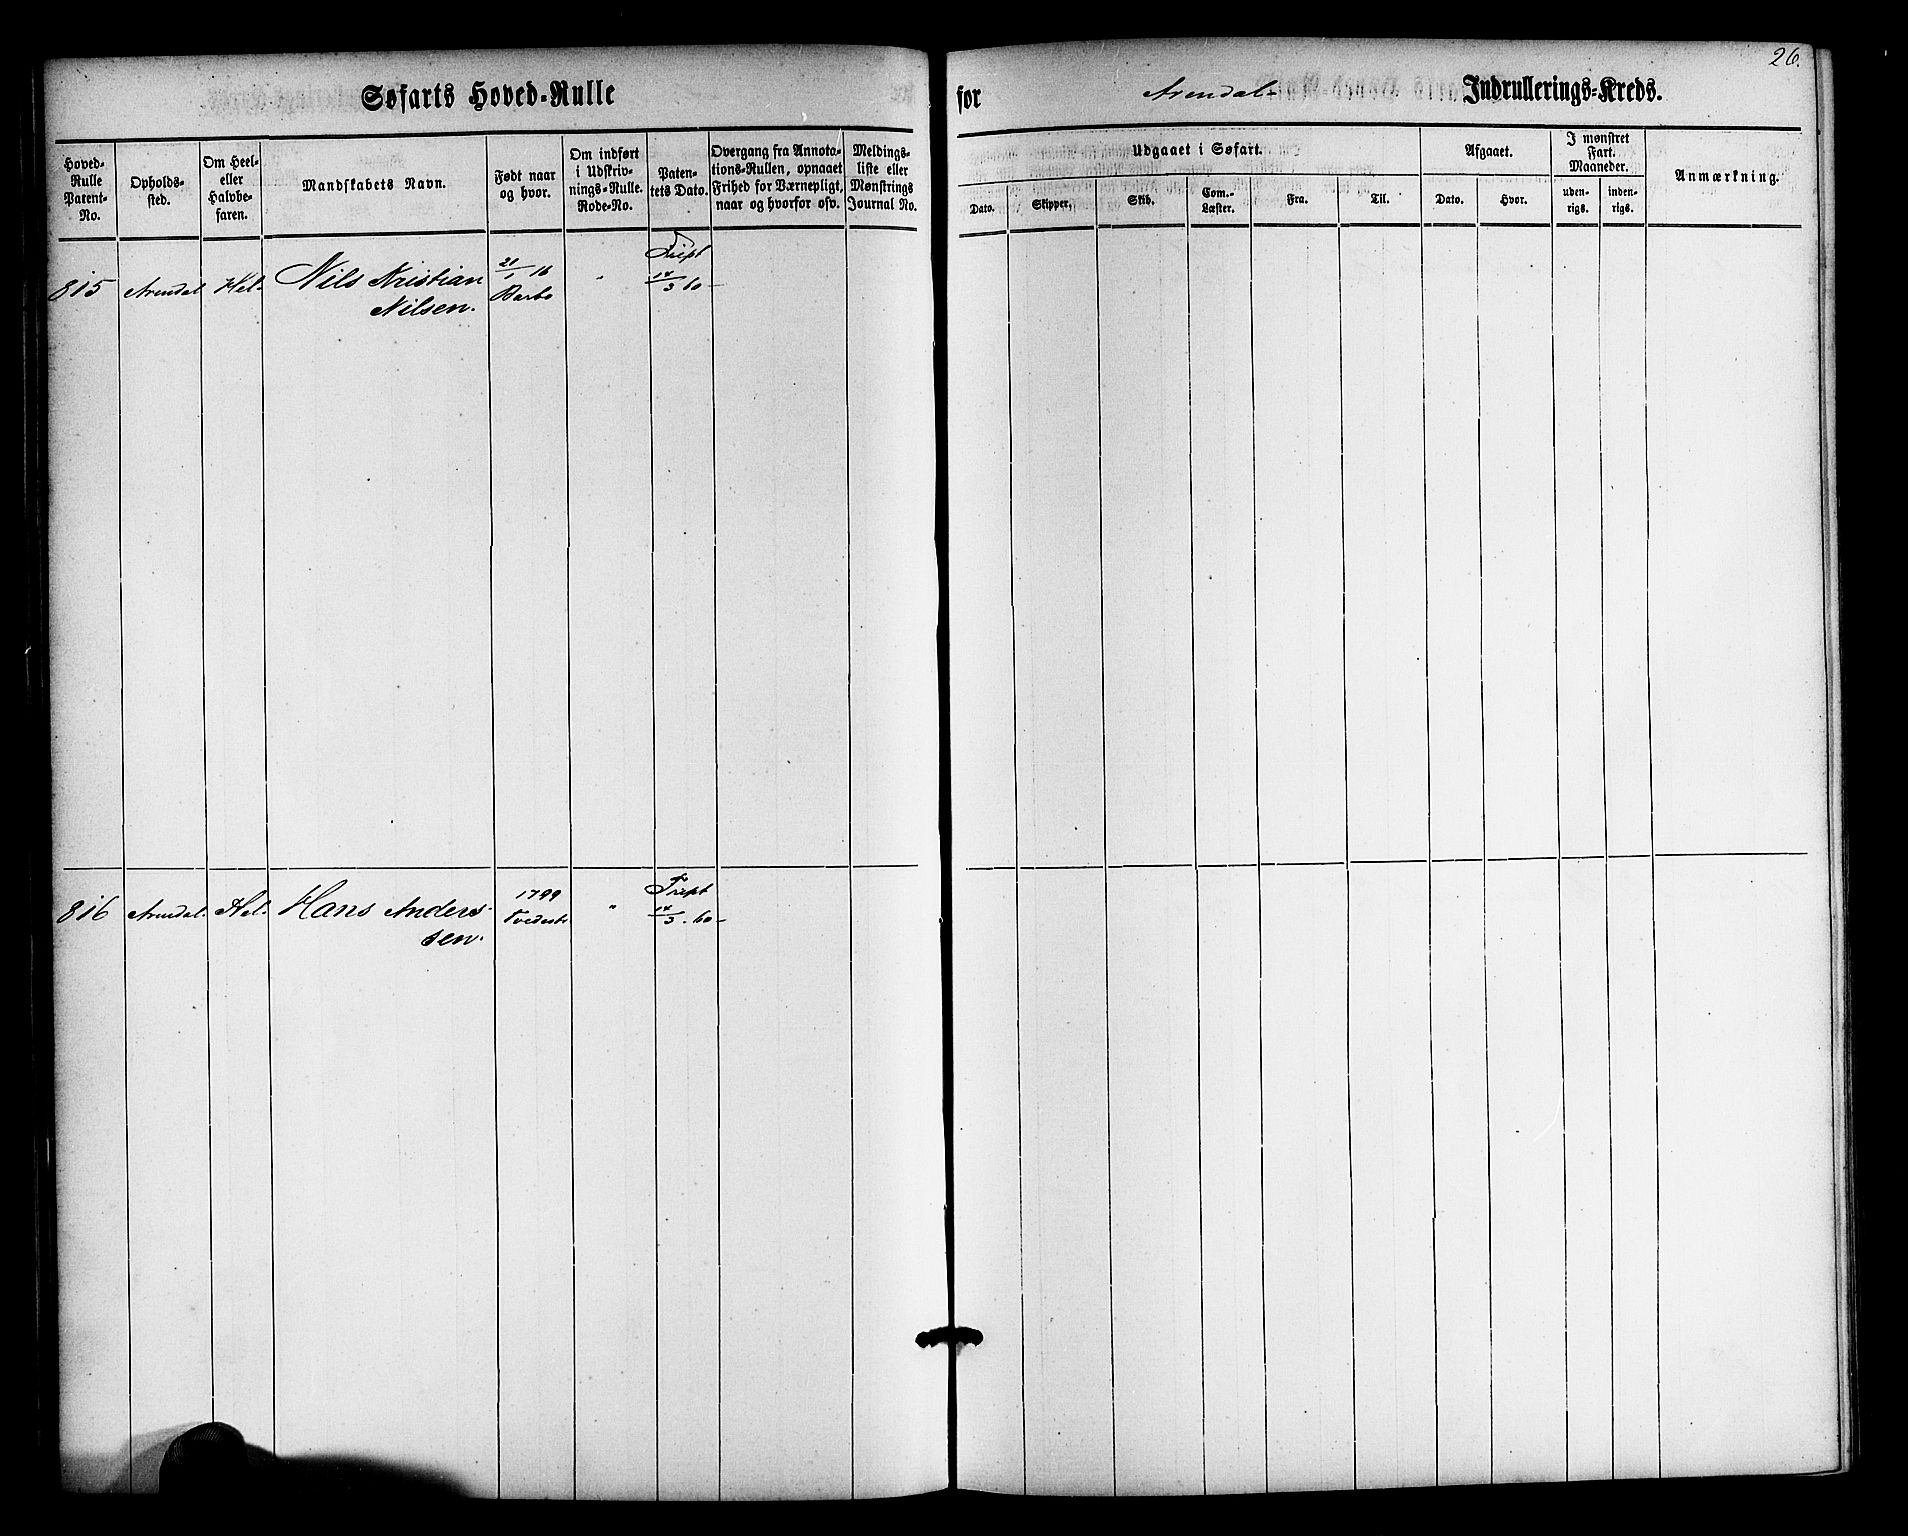 26.
Søfarts Hoved-Rulle for Arendal- Indrullerings-Kreds.
Hoved-
Rulle
Patent-
No.
Opholds-
sted.
Om Heel-
eller
Halvbe-
faren.
Mandskabets Navn.
Født naar
og hvor.
Om indført
i Udskriv-
nings-Rulle.
Rode-No.
Paten-
tets Dato.
Overgang fra Annota-
tions-Rullen, opnaaet
Frihed for Værnepligt,
naar og hvorfor osv.
Meldings-
liste eller
Mønstrings
Journal No.
Udgaaet i Søfart.
Dato.
Skipper.
Skib.
Com.-
Læster.
Fra.
Til.
Afgaaet.
Dato.
Hvor.
I mønstret
Fart.
Maaneder.
uden-
rigs.
inden-
rigs.
Anmærkning.
815 Arendal Hel- Nils Kristian
Nilsen.
21/1 16
Barbo
"
14/3 60-
816 Arendal. Hel- Hans Anders-
sen.
1799
Tvedestr
"
14/3. 60-